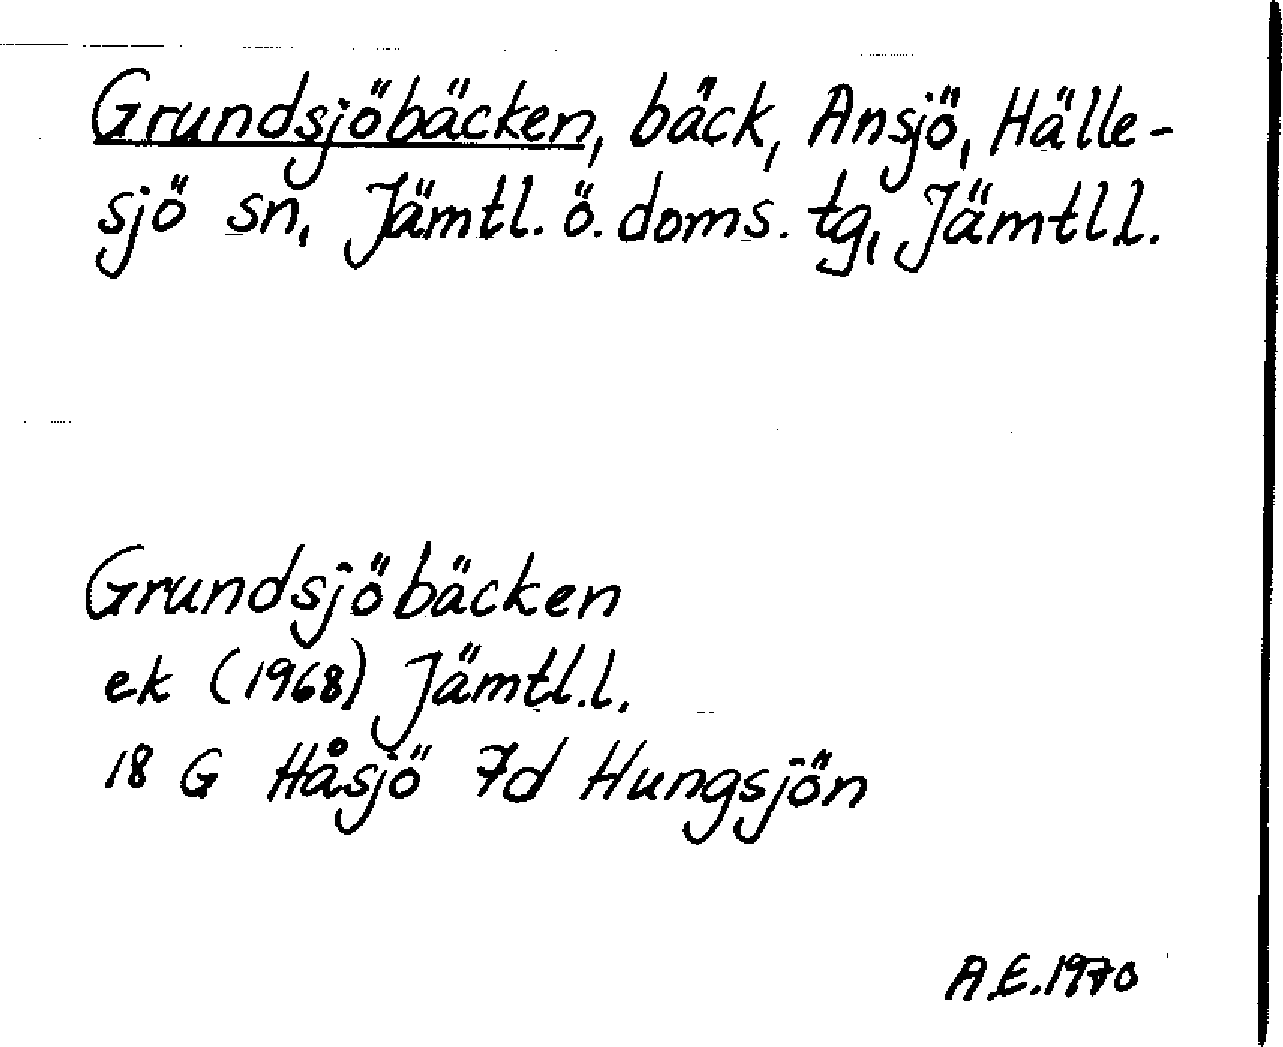 Grundsjöbäcken, bäck, Ansjö, Hälle-
sjö sn, Jämtl. ö. doms. tg, Jämtl l.
Grundsjöbäcken
ek (1968) Jämtl.l.
18 G Håsjö 7d Hungsjön
A.E. 1970